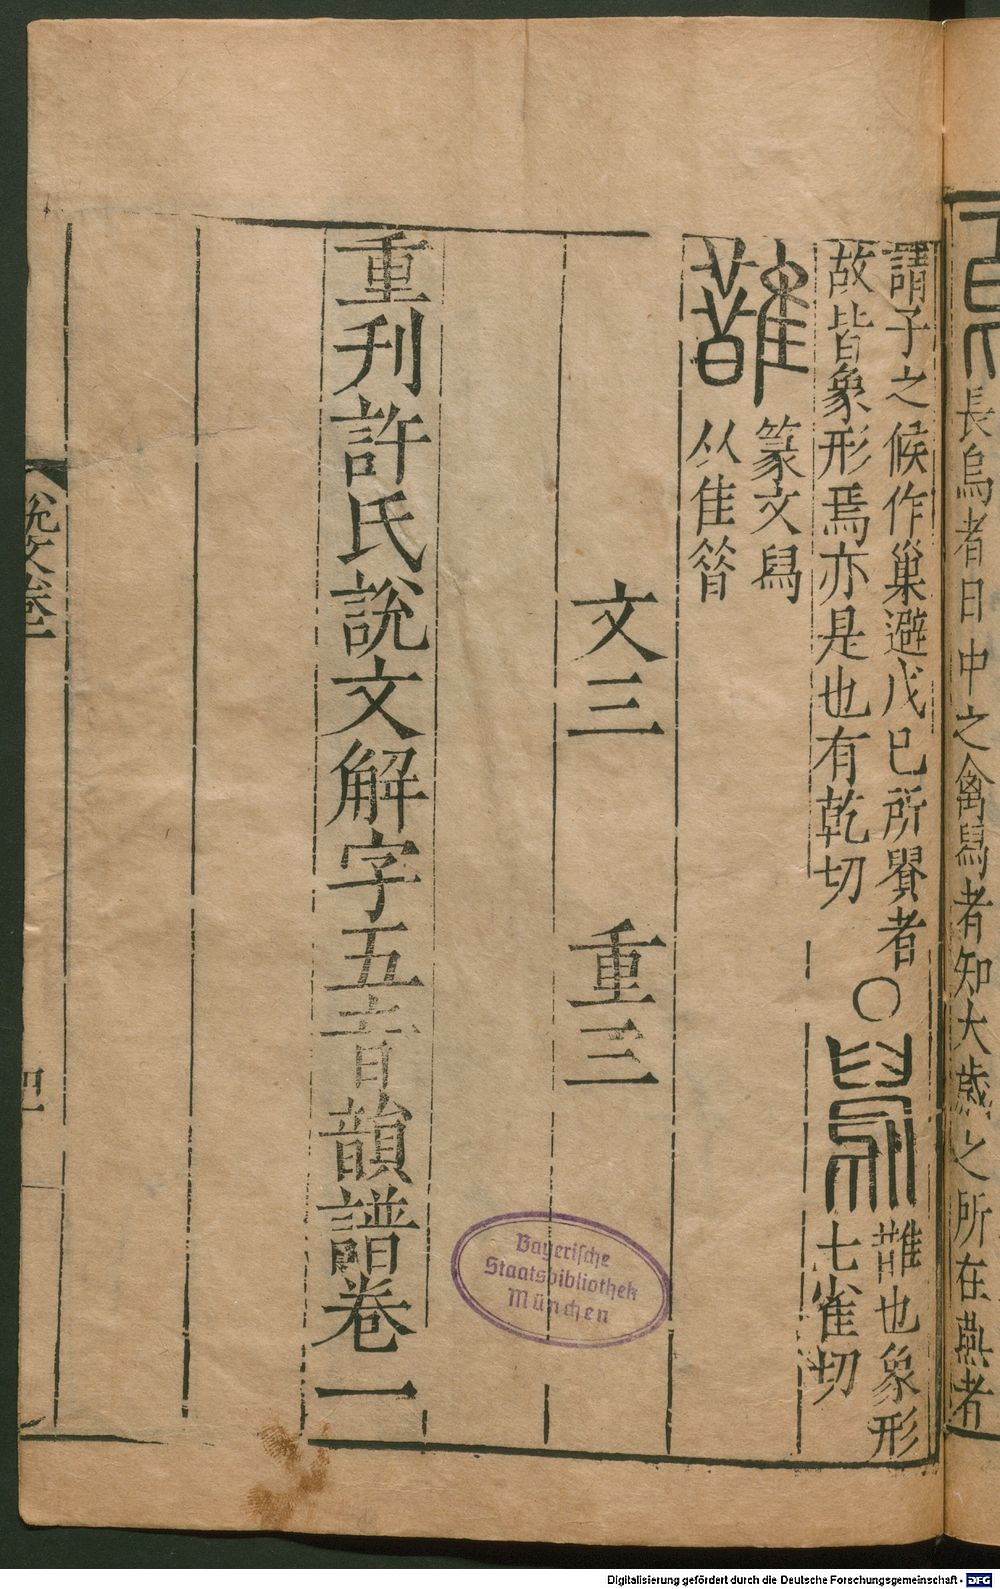 長烏者日中之禽舄者知太歲之所在燕者
請子之候作巢避戊己所貴者
故皆象形焉亦是也有乾切
〇
舄
䧿也象形
七雀切
䧿
篆文舄
从隹㫺
文三 重三
重刊許氏說文解字五音韻譜卷一
說文卷一
四
Bayerische
Staatsbibliothek
München
Digitalisierung gefördert durch die Deutsche Forschungsgemeinschaft - DFG